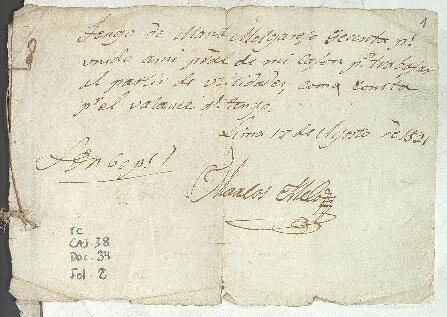 1
Tengo de Mont Melgarejo sesenta ps
unido a mi pral de mi Cajon pa trabajar
al partir de utilidades, como consta
pr el valance qe tengo.
Lima 17 de Agosto de 1821
Son 60 ps
Marcos Melo
TC
CAJ. 38
Doc. 34
Fol. 2